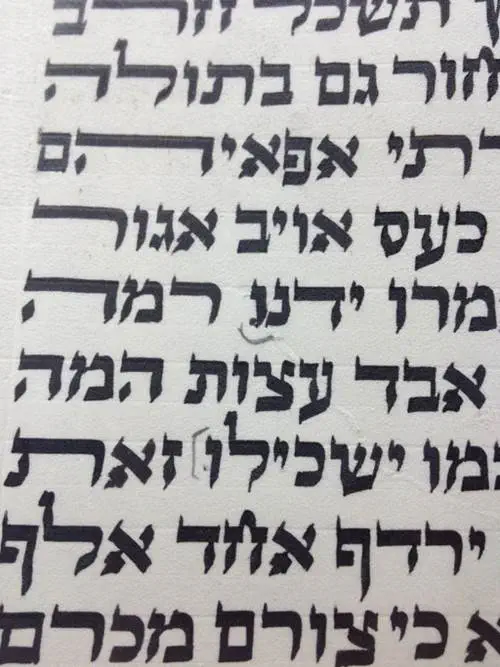 תשכל חרב
חור גם בתולה
רתי אפאיהם
כעס אויב אגור
מרו ידנו רמה
אבד עצות המה
כמו ישכילו זאת
ירדף אחד אלף
א כי צורם מכרם